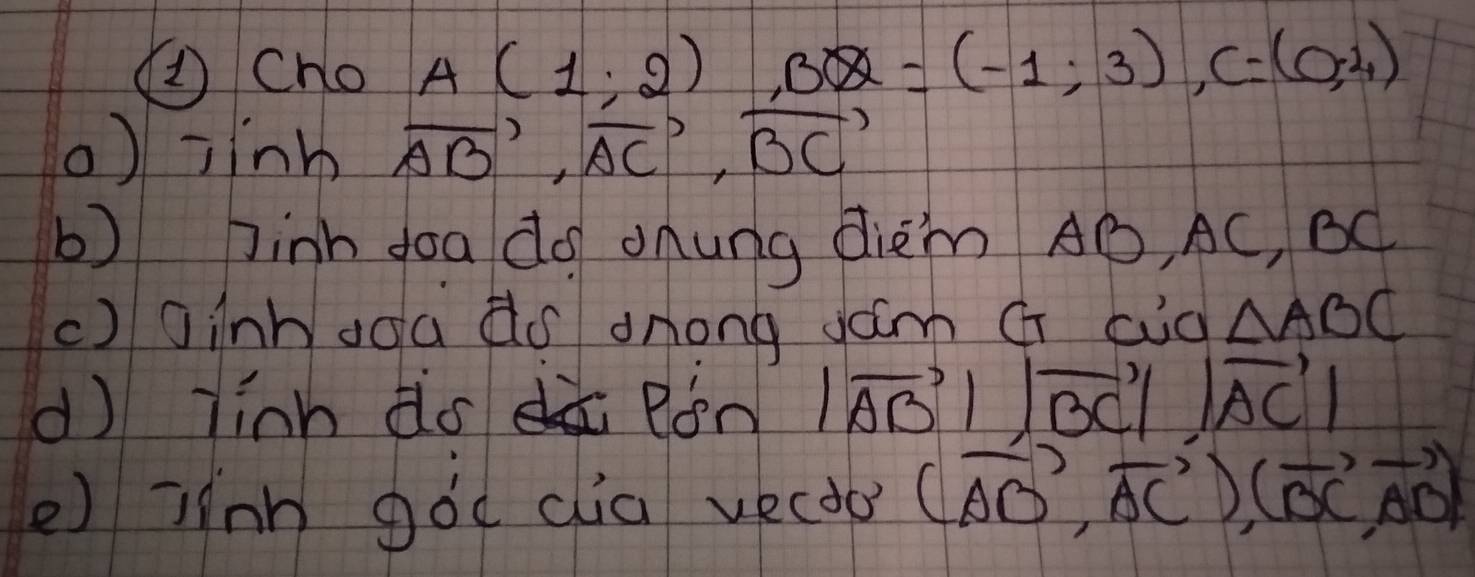 ① Cho A (1; 2), B = (-1; 3), C = (0; 4)
a) Tính \overrightarrow{AB}, \overrightarrow{AC}, \overrightarrow{BC}
b) Tính tọa độ trung điểm AB, AC, BC
c) Tính tọa độ trọng tâm G của △ABC
d) Tính độ lớn |\overrightarrow{AB}|, |\overrightarrow{BC}|, |\overrightarrow{AC}|
e) Tính góc của vectơ (\overrightarrow{AB}, \overrightarrow{AC}), (\overrightarrow{BC}, \overrightarrow{AB})